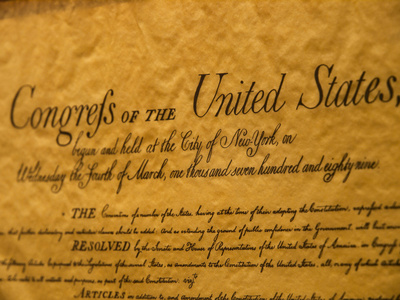 Congreſs OF THE United States,
begun and held at the City of New-York, on
Wednesday the fourth of March, one thousand seven hundred and eighty nine
THE Conventions of a number of the States, having at the time of their adopting the Constitution, expressed a desire
that further declaratory and restrictive clauses should be added: And as extending the ground of public confidence in the Government, will best
RESOLVED by the Senate and House of Representatives of the United States of America, in Congress
the following Articles be proposed to the Legislatures of the several States, as amendments to the Constitution of the United States, all, or any of which articles
to all intents and purposes, as part of the said Constitution; vizt.
ARTICLES in addition to, and amendment of the Constitution of the United States